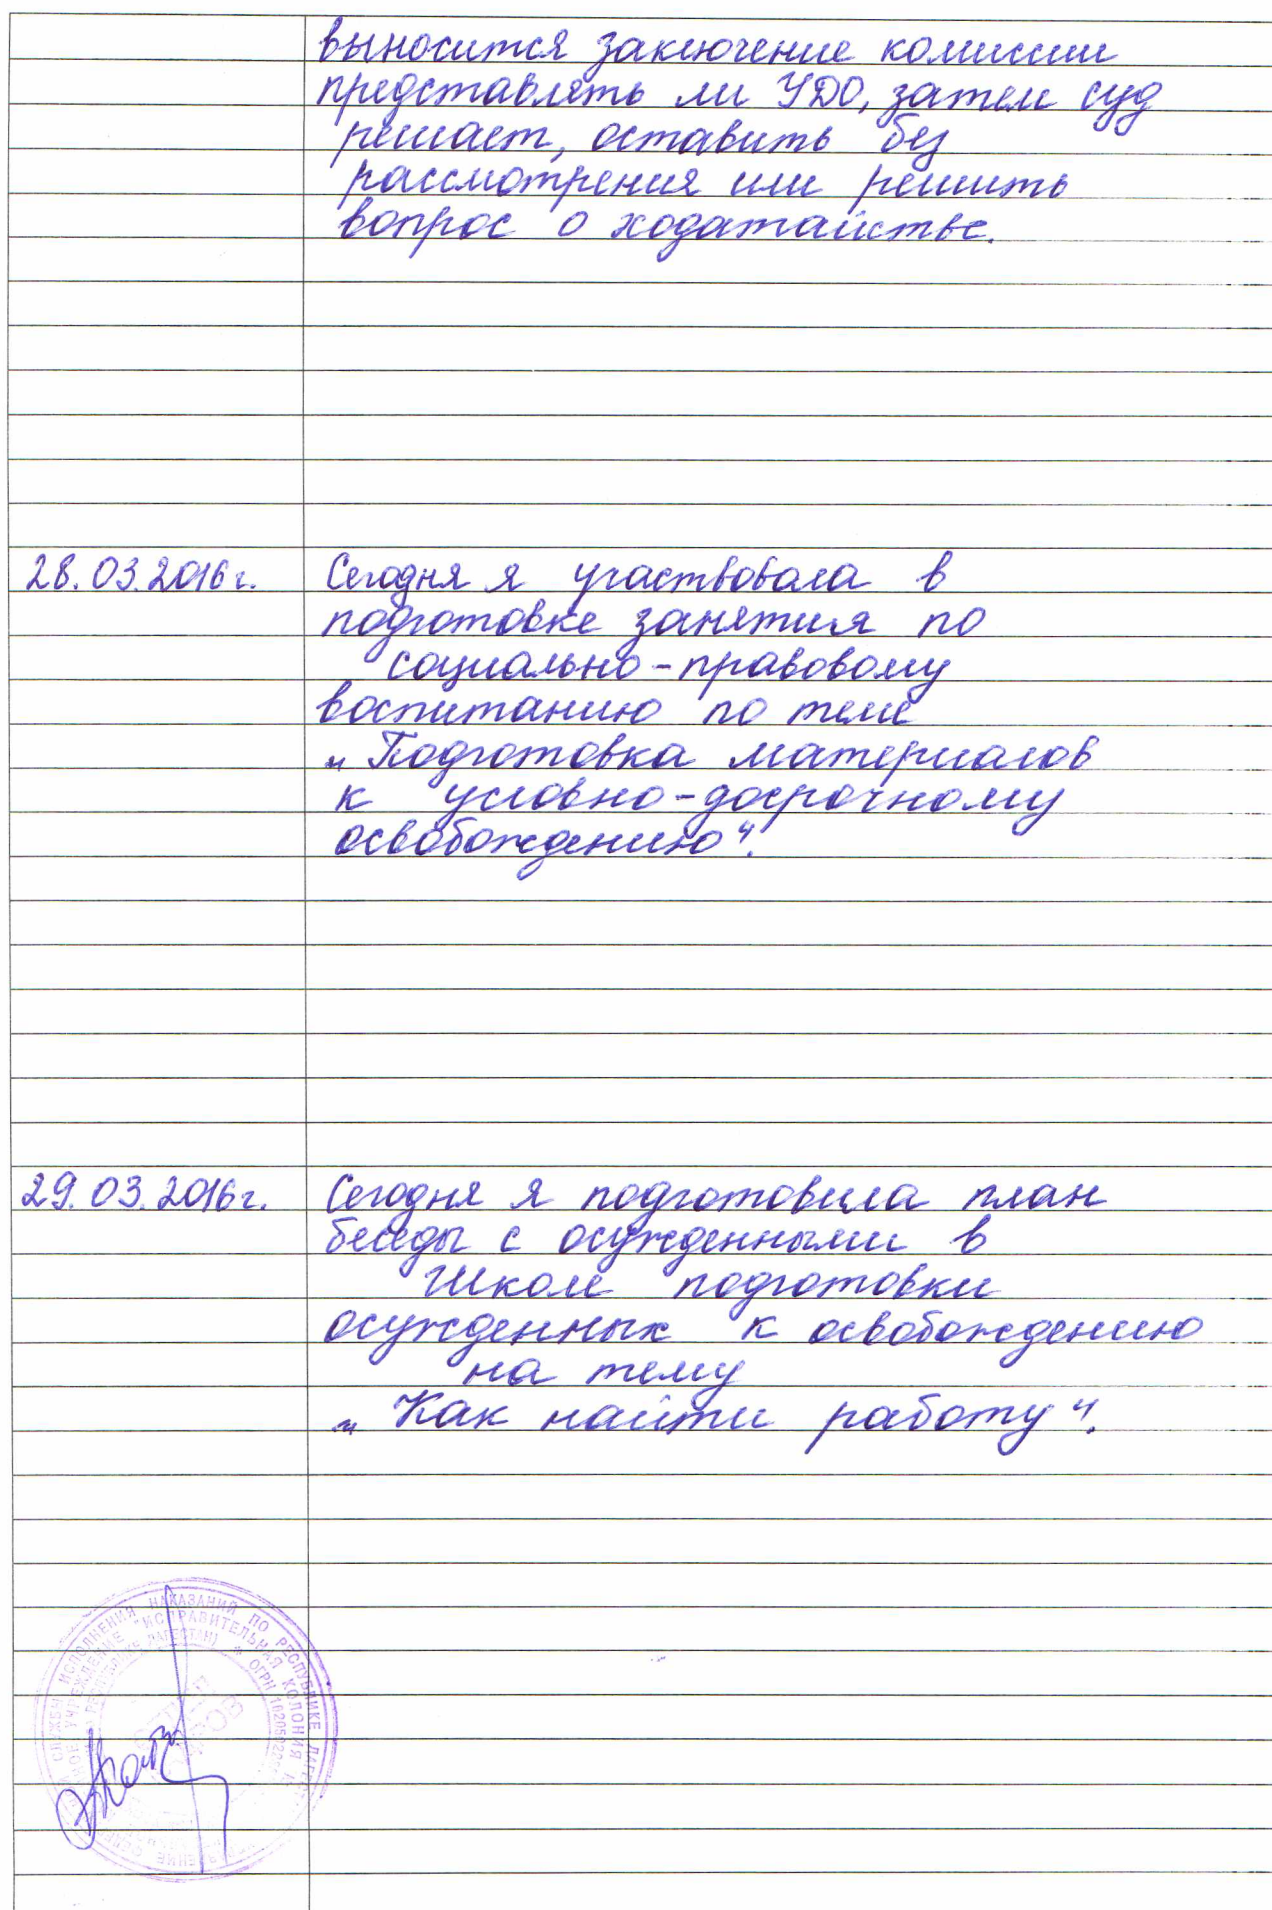 выносится заключение комиссии
представлять ли УДО, затем суд
решает, оставить без
рассмотрения или решить
вопрос о ходатайстве.
28.03.2016г. Сегодня я участвовала в
подготовке занятия по
социально-правовому
воспитанию по теме
„Подготовка материалов
к условно-досрочному
освобождению“.
29.03.2016г. Сегодня я подготовила план
беседы с осужденными в
Школе подготовки
осужденных к освобождению
на тему
„Как найти работу“.
СЛУЖБЫ ИСПОЛНЕНИЯ НАКАЗАНИЙ ПО РЕСПУБЛИКЕ
УЧРЕЖДЕНИЕ "ИСПРАВИТЕЛЬНАЯ КОЛОНИЯ
РЕСПУБЛИКЕ ДАГЕСТАН) * ОГРН